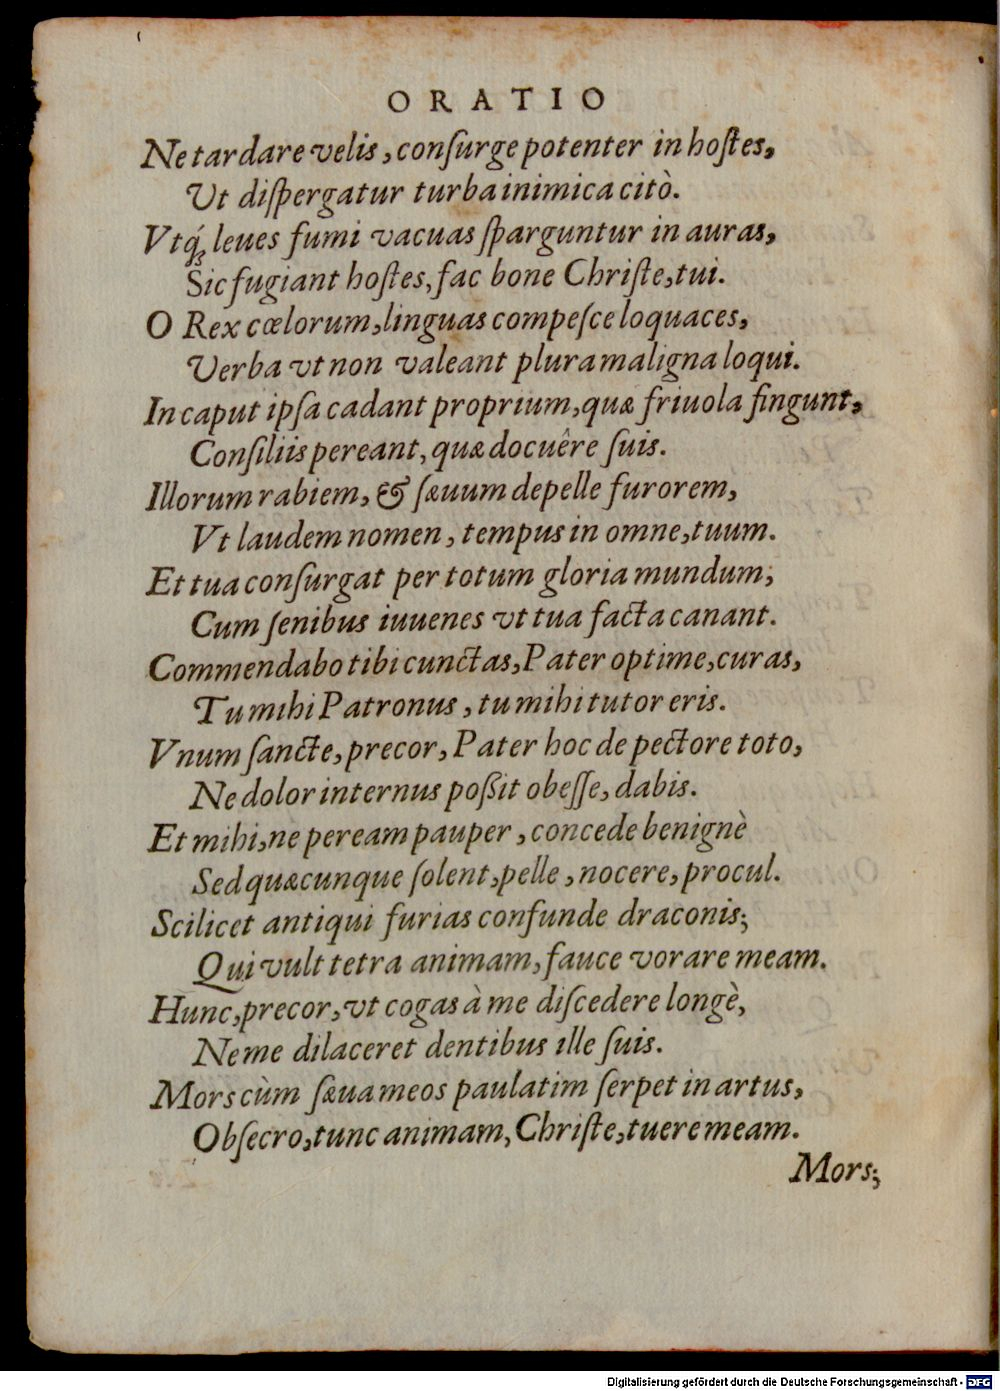 ORATIO
Ne tardare velis, conſurge potenter in hoſtes,
Ut diſpergatur turba inimica citò.
Vtq́ꝫ leues fumi vacuas ſparguntur in auras,
Sic fugiant hoſtes, fac bone Chriſte, tui.
O Rex cœlorum, linguas compeſce loquaces,
Verba vt non valeant plura maligna loqui.
In caput ipſa cadant proprium, quæ friuola fingunt,
Conſiliis pereant, quæ docuêre ſuis.
Illorum rabiem, & ſæuum depelle furorem,
Vt laudem nomen, tempus in omne, tuum.
Et tua conſurgat per totum gloria mundum;
Cum ſenibus iuuenes vt tua facta canant.
Commendabo tibi cunctas, Pater optime, curas,
Tu mihi Patronus, tu mihi tutor eris.
Vnum ſancte, precor, Pater hoc de pectore toto,
Ne dolor internus poßit obeſſe, dabis.
Et mihi, ne peream pauper, concede benignè
Sed quæcunque ſolent, pelle, nocere, procul.
Scilicet antiqui furias confunde draconis;
Qui vult tetra animam, fauce vorare meam.
Hunc, precor, vt cogas à me diſcedere longè,
Ne me dilaceret dentibus ille ſuis.
Mors cùm ſæua meos paulatim ſerpet in artus,
Obſecro, tunc animam, Chriſte, tuere meam.
Mors;
Digitalisierung gefördert durch die Deutsche Forschungsgemeinschaft - DFG